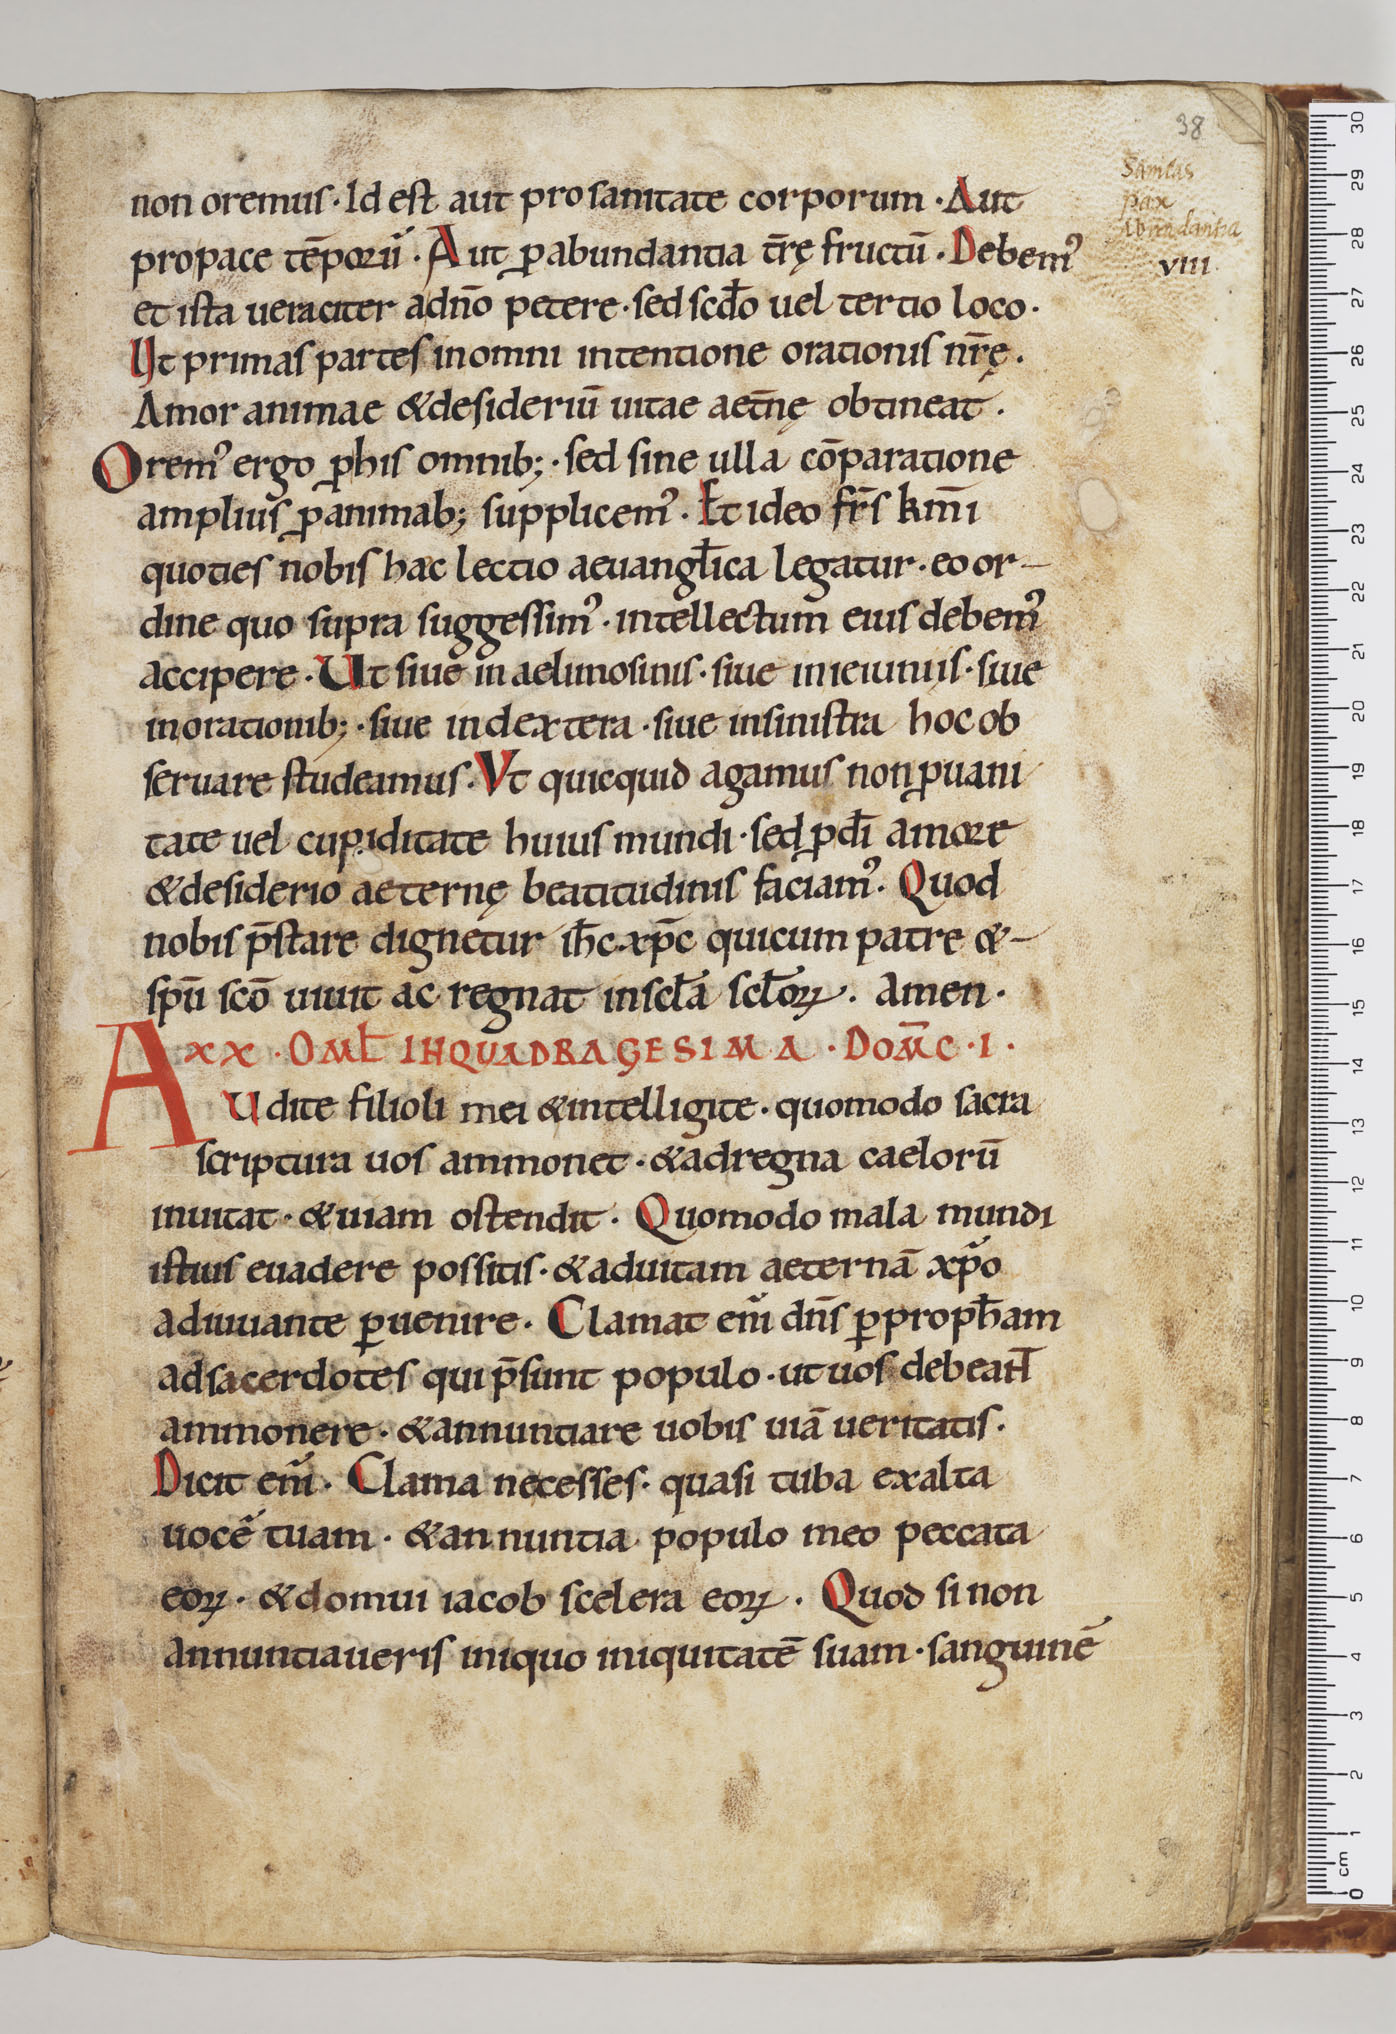 38
Sanitas
pax
Abundantia
VIII
non oremus · Id est aut pro sanitate corporum · Aut
propace tēporū · Aut ꝑabundantia t̄rę fructū · Debem᾽
et ista ueraciter adn̄o petere · sed scd̄o uel tertio loco ·
Ut primas partes inomni intentione orationis nr̄ę ·
Amor animae &desideriū uitae aet̄nę obtineat ·
Orem᾽ ergo ꝓhis omnib; · sed sine ulla cōparatione
amplius ꝓanimab; supplicem᾽ · Et ideo fr̄s km̄i
quoties nobis hac lectio aeuangl̄ica legatur · eo or-
dine quo supra suggessim᾽ · intellectum eius debem᾽
accipere · Ut siue in aelimosinis · siue inieiuniis · siue
inorationib; · siue indextera · siue insinistra hoc ob
seruare studeamus · Vt quicquid agamus non ꝓuani
tate uel cupiditate huius mundi · sed ꝓdī amore
&desiderio aeternę beatitudinis faciam᾽ · Quod
nobis p̄stare dignetur ih̄c xp̄c quicum patre &-
spū scō uiuit ac regnat inscl̄a scl̄oꝝ · Amen ·
XX · OML̄ INQUADRAGESIMA · DOM̄C · I ·
AUdite filioli mei &intelligite · quomodo sacra
scriptura uos ammonet · &adregna caelorū
inuitat · &uiam ostendit · Quomodo mala mundi
istius euadere possitis · &aduitam aeternā xp̄o
adiuuante ꝑuenire · Clamat eni̅ dn̄s ꝑproph̄am
adsacerdotes qui p̄sunt populo · ut uos debeaN̄T
ammonere · &annuntiare uobis uiā ueritatis ·
Dicit eni̅ · Clama necesses · quasi tuba exalta
uocē tuam · &annuntia populo meo peccata
eoꝝ · &domui iacob scelera eoꝝ · Quod si non
annuntiaueris iniquo iniquitatē suam · sanguinē
30
29
28
27
26
25
24
23
22
21
20
19
18
17
16
15
14
13
12
11
10
9
8
7
6
5
4
3
2
1
cm
0